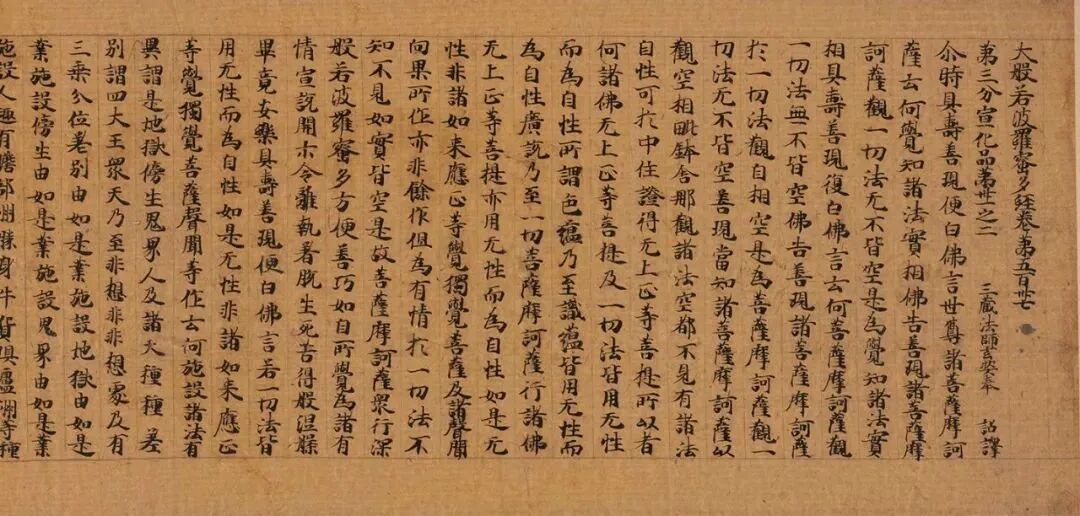 大般若波羅蜜多経卷苐五百卅七
苐三分宣化品苐卅之二
三藏法師玄奘奉 詔譯
尒時具壽善現便白佛言世尊諸菩薩摩訶
薩云何覺知諸法實相佛告善現諸菩薩摩
訶薩觀一切法无不皆空是為覺知諸法實
相具壽善現復白佛言云何菩薩摩訶薩觀
一切法無不皆空佛告善現諸菩薩摩訶薩
扵一切法觀自相空是為菩薩摩訶薩觀一
切法无不皆空善現當知諸菩薩摩訶薩以
觀空相毗鉢舍那觀諸法空都不見有諸法
自性可扵中住證得无上正等菩提所以者
何諸佛无上正等菩提及一切法皆用无性
而為自性所謂色藴乃至識藴皆用无性而
為自性廣說乃至一切菩薩摩訶薩行諸佛
无上正等菩提亦用无性而為自性如是无
性非諸如来應正等覺獨覺菩薩及諸聲聞
向果所作亦非餘作但為有情扵一切法不
知不見如實皆空是故菩薩摩訶薩衆行深
般若波羅蜜多方便善巧如自所覺為諸有
情宣說開示令離執著脫生死苦得般涅槃
畢竟安樂具壽善現便白佛言若一切法皆
用无性而為自性如是无性非諸如来應正
等覺獨覺菩薩聲聞等作云何施設諸法有
異謂是地獄傍生鬼界人及諸天種種差
別謂四大王衆天乃至非想非非想處及有
三乘分位差別由如是業施設地獄由如是
業施設傍生由如是業施設鬼界由如是業
施設人趣有贍部洲勝身牛貨俱盧洲等種